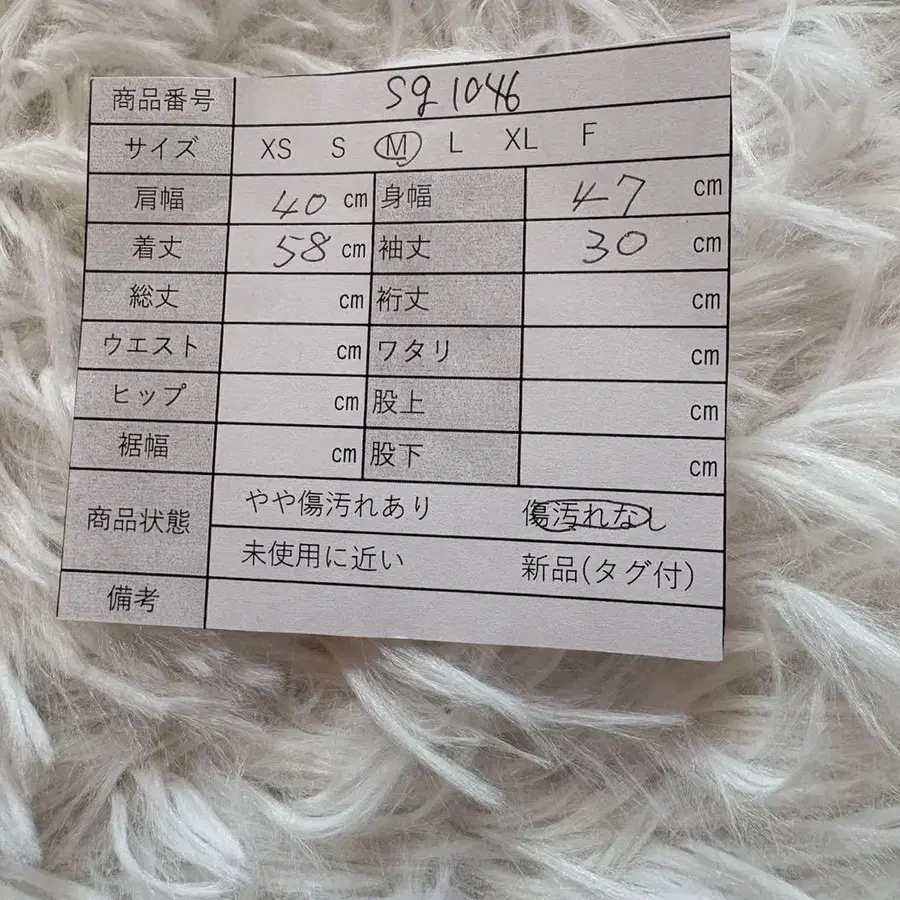 商品番号 sg1046
サイズ XS S M L XL F
肩幅 40 cm 身幅 47 cm
着丈 58 cm 袖丈 30 cm
総丈 cm 裄丈 cm
ウエスト cm ワタリ cm
ヒップ cm 股上 cm
裾幅 cm 股下 cm
商品状態 やや傷汚れあり 傷汚れなし
未使用に近い 新品(タグ付)
備考